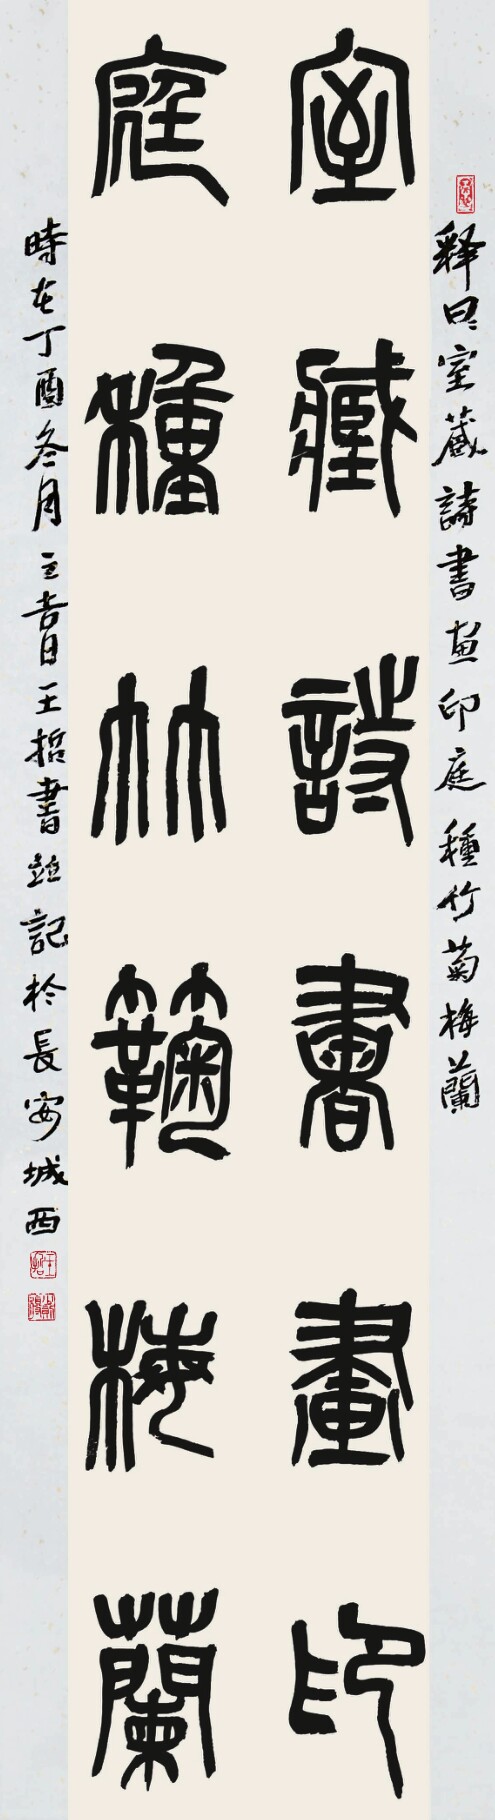 释曰室藏詩書画印庭種竹菊梅蘭
室藏詩書畫印
庭種竹菊梅蘭
時在丁酉冬月之吉日王哲書並記於長安城西